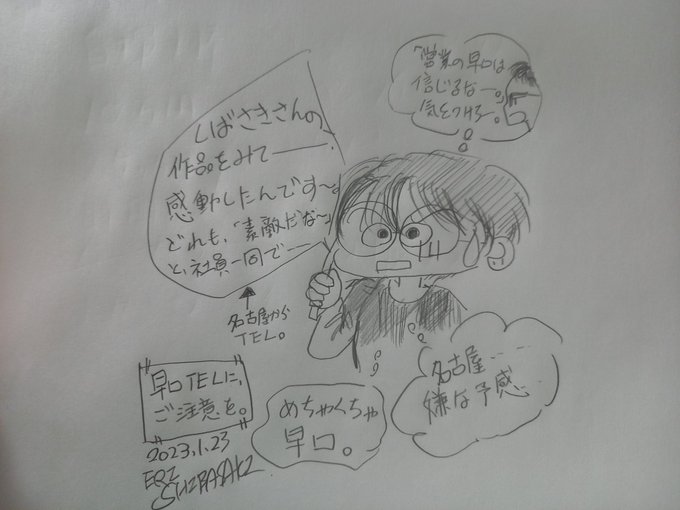 しばさきさんの、
作品をみてーー、
感動したんです〜。
どれも、「素敵だな〜」
と、社員一同でーー
名古屋から
TEL。
「営業の早口は
信じるなー。
気をつけろー。
名古屋……
嫌な予感…
めちゃくちゃ
早口。
早口TELに、
ご注意を。
2023.1.23
SHIBASAKI